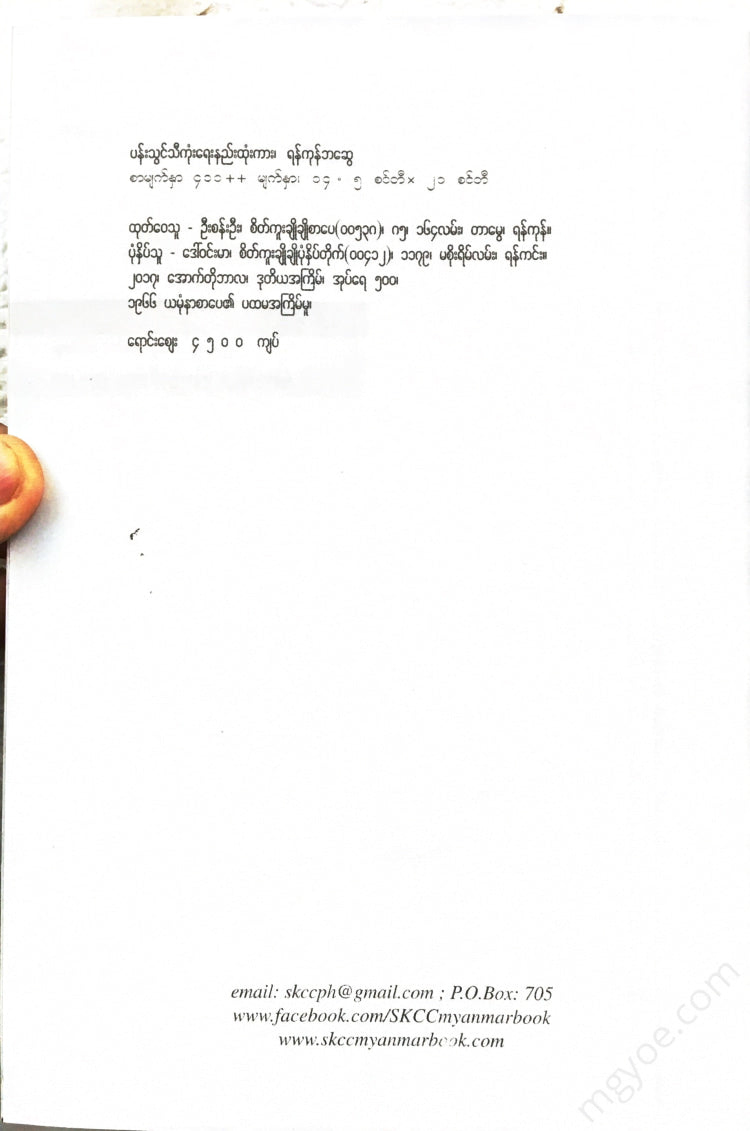 ပန်းသွင်သီကုံးရေးနည်းထုံးကား၊ ရန်ကုန်ဘဆွေ
စာမျက်နှာ ၄၁၁++ မျက်နှား ၁၄ . ၅ စင်တီ× ၂၁ စင်တီ
ထုတ်ဝေသူ - ဦးစန်းဦး၊ စိတ်ကူးချိုချိုစာပေ(၀၀၅၃၈)၊ ၈၅၊ ၁၆၄လမ်း၊ တာမွေ၊ ရန်ကုန်။
ပုံနှိပ်သူ - ဒေါ်ဝင်းမာ၊ စိတ်ကူးချိုချိုပုံနှိပ်တိုက်(၀၀၄၁၂)၊ ၁၁၇၉၊ မစိုးရိမ်လမ်း၊ ရန်ကင်း။
၂၀၁၇၊ အောက်တိုဘာလ၊ ဒုတိယအကြိမ်၊ အုပ်ရေ ၅၀၀၊
၁၉၆၆ ယမုံနာစာပေ၏ ပထမအကြိမ်မူ၊
ရောင်းဈေး ၄ ၅ ၀ ၀ ကျပ်
email: skccph@gmail.com ; P.O.Box: 705
www.facebook.com/SKCCmyanmarbook
www.skccmyanmarbook.com
mgyoe.com